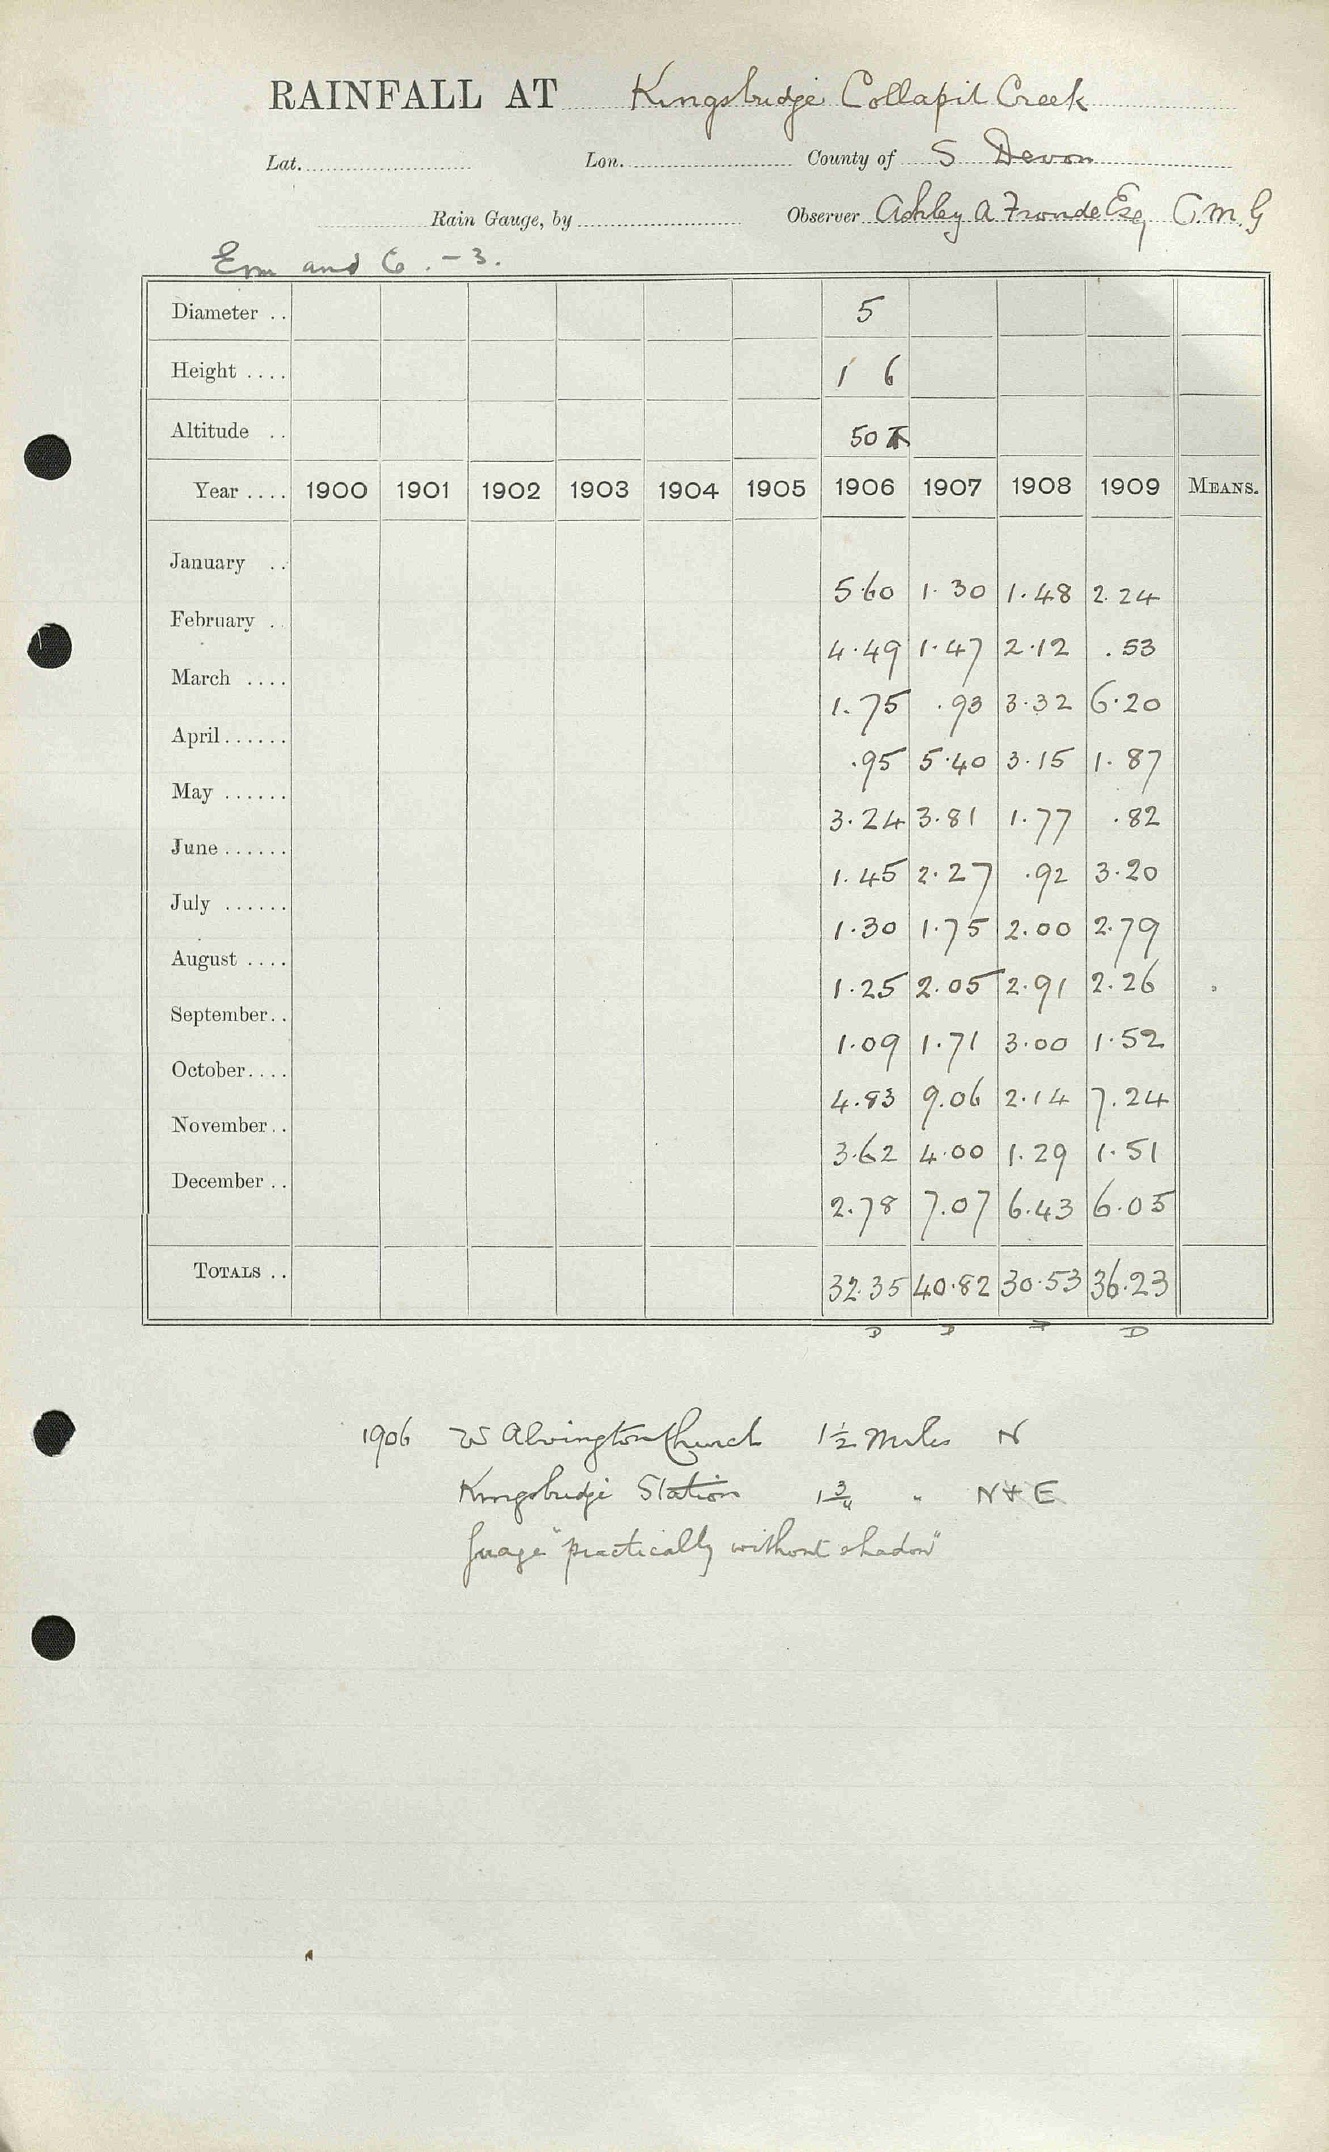 RAINFALL AT Kingsbridge Collapit Creek
Lat. Lon. County of S Devon
Rain Gauge, by Observer Ashley A Froude Esq C.M.G
Erm and C. - 3.
Diameter .. 5
Height .... 1 6
Altitude .. 50 T
Year .... 1900 1901 1902 1903 1904 1905 1906 1907 1908 1909 MEANS.
January .. 5.60 1.30 1.48 2.24
February . 4.49 1.47 2.12 .53
March .... 1.75 .93 3.32 6.20
April...... .95 5.40 3.15 1.87
May ...... 3.24 3.81 1.77 .82
June...... 1.45 2.27 .92 3.20
July ...... 1.30 1.75 2.00 2.79
August .... 1.25 2.05 2.91 2.26
September.. 1.09 1.71 3.00 1.52
October.... 4.83 9.06 2.14 7.24
November.. 3.62 4.00 1.29 1.51
December .. 2.78 7.07 6.43 6.05
TOTALS .. 32.35 40.82 30.53 36.23
D D D
1906 W Alvington Church 1½ Miles N
Kingsbridge Station 1¾ " N + E
Guage "practically without shadow"